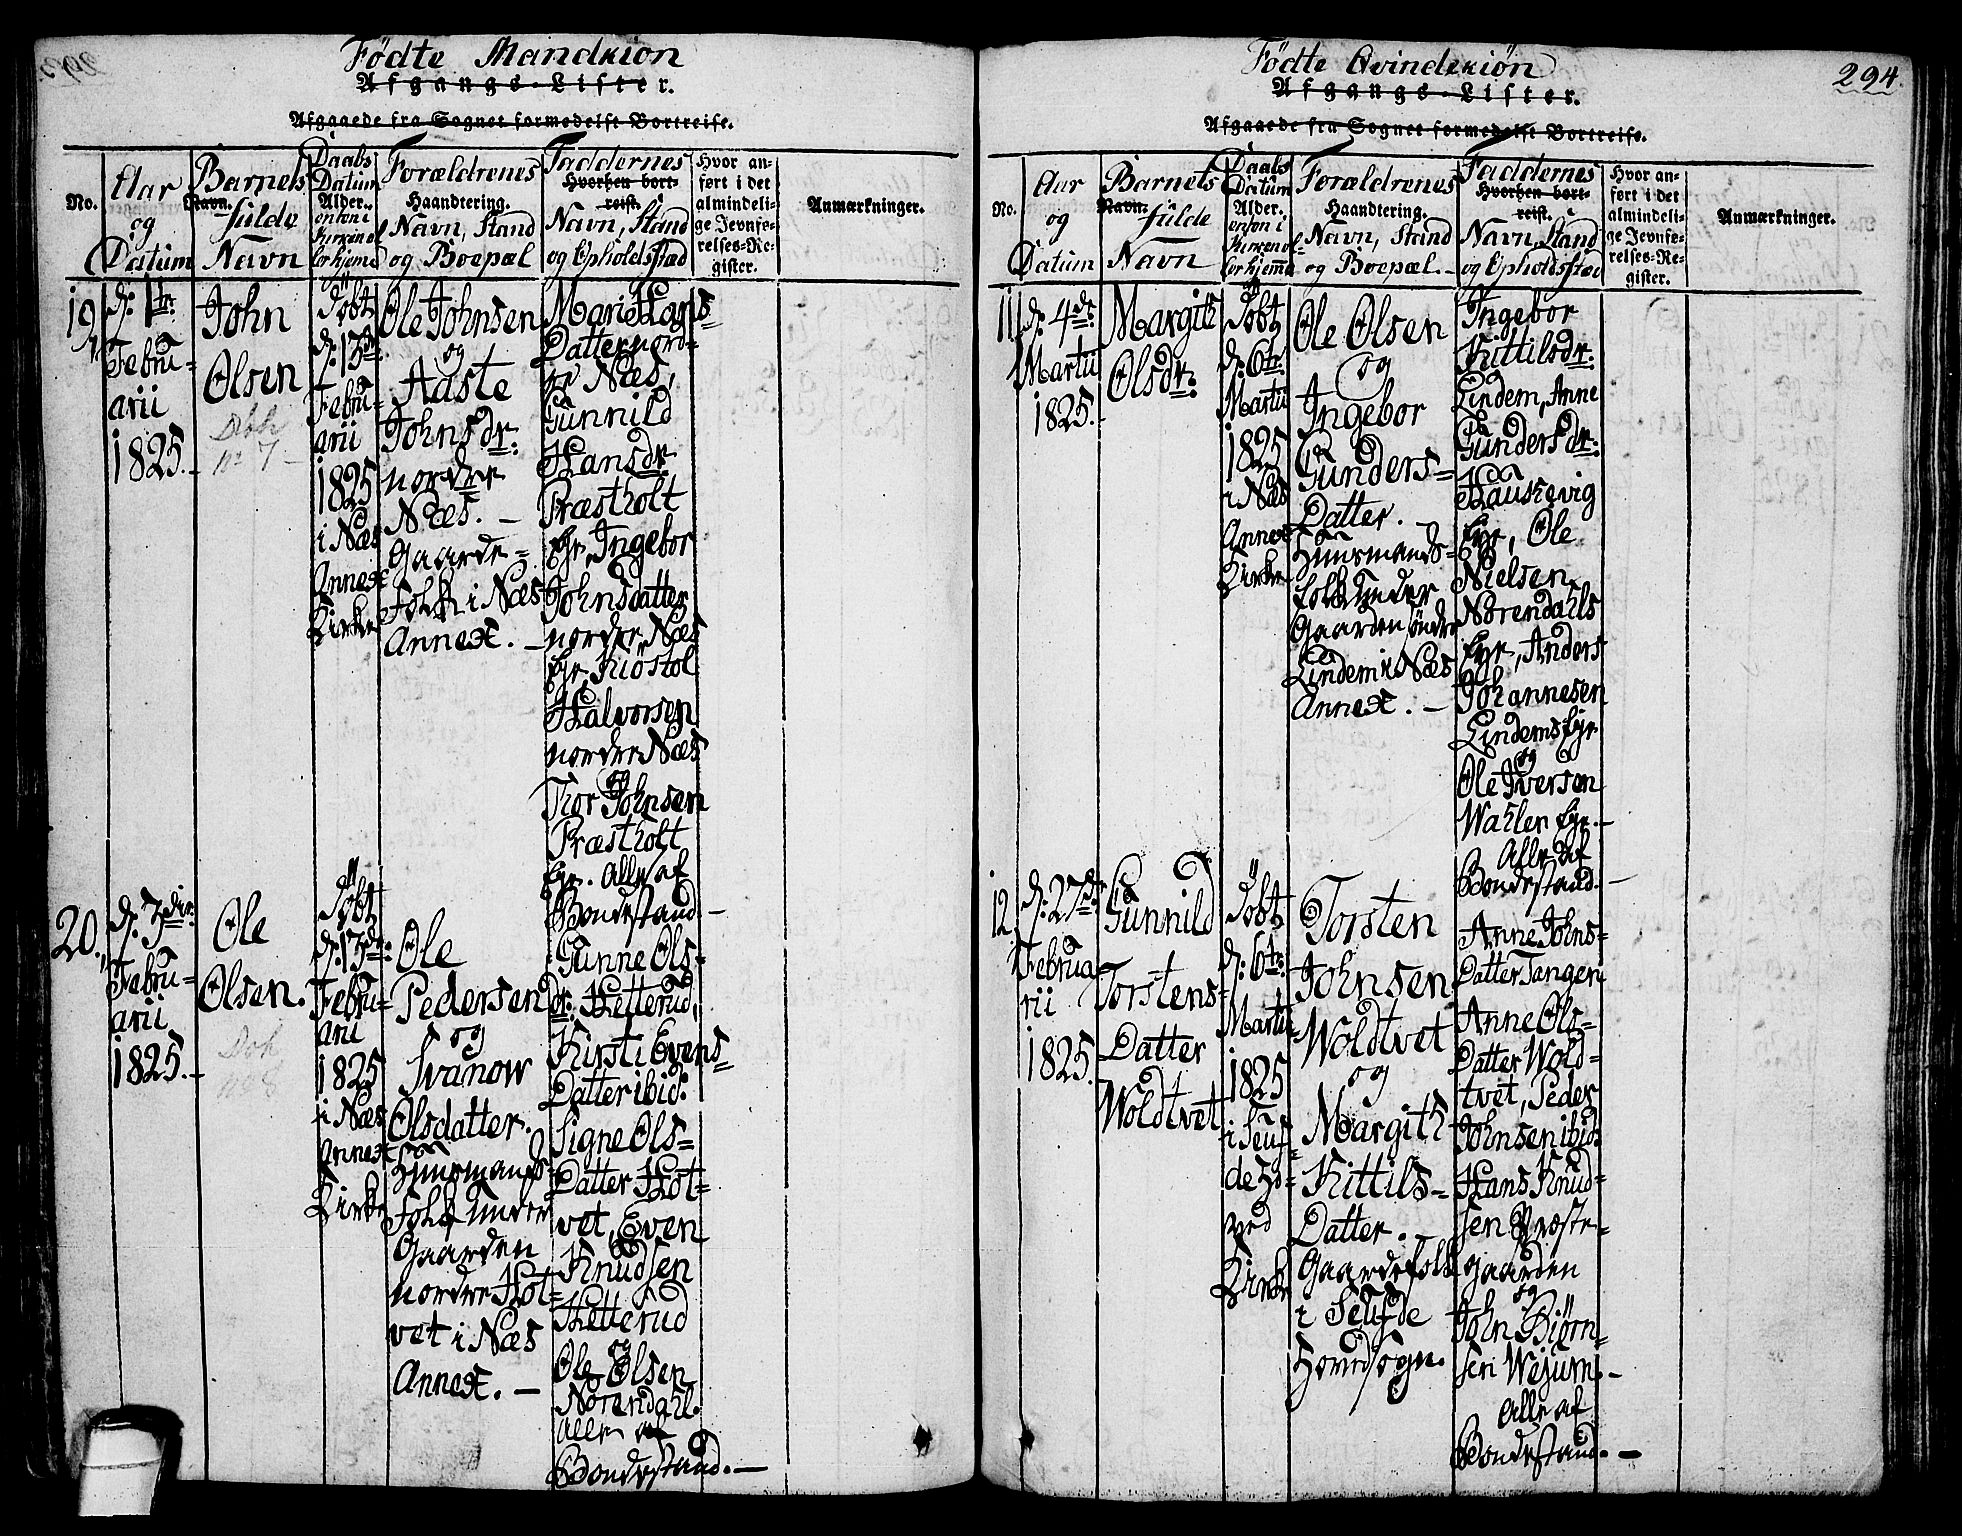 Fødte Mandkiøn
Afgangs-Lister.
Afgaaede fra Sognet formedelst Bortreise.
No.
Aar
og
Datum
Barnets
Navn.
fulde
Navn
Daabs
Datum
Alder.
enten i
Kirken el
Forældrenes
Haandtering.
Navn, Stand
og Boepæl
Faddernes
Hvorhen bort-
reist.
Navn, Stand
og Opholdsstæd
Hvor an-
ført i det
almindeli-
ge Jevnfø-
relses-Re-
gister.
Anmærkninger.
19,
d: 1te
Febru-
arii
1825.
John
Olsen
Døbt
d: 13de
Febru-
arii
1825
i Næs
Annex
Kirke
Ole Johnsen
og
Aaste
Johnsdr:
nordre
Næs.
Gaarde-
Folk i Næs
Annex.
Marie Hans-
Datter nord-
re Næs,
Gunnild
Hansdr.
Præstholt
Eyr, Ingebor
Johnsdatter
nordre Næs
Eyr, Kiøstol
Halvorsen
nordre Næs
og
Thor Johnsen
Præstholt
Eyr. Alle af
Bondestand.
20.,
d: 3die
Febru-
arii
1825.
Ole
Olsen.
Døbt
d: 13de:
Febru-
arii
1825
i Næs
Annex
Kirke
Ole
Pedersen
og
Svanow
Olsdatter.
Huusmands-
Folk under
Gaarden
nordre Hot-
vet i Næs
Annex.
Gunne Ols-
dr: Hetterud,
Kirsti Evens-
Datter ibid:
Signe Ols-
Datter Hot-
vet, Even
Knudsen
Hetterud
og
Ole Olsen
Nørendahl.
Alle af
Bondestand.
Fødte Qvindekiøn
294.
Afgangs-Lister.
Afgaaede fra Sognet formedelst Bortreise.
No.
Aar
og
Datum
Barnets
Navn.
fulde
Navn
Daabs
Datum
Alder.
enten i
Kirken el
Forældrenes
Haandtering.
Navn, Stand
og Boepæl.
Faddernes
Hvorhen bort-
reist.
Navn, Stand
og Opholdsstæd
Hvor an-
ført i det
almindeli-
ge Jevnfø-
relses-Re-
gister.
Anmærkninger.
11,
d: 4de
Martii
1825.
Margith
Olsdr:
Døbt
d: 6te
Martii
1825
i Næs
Annex
Kirke
Ole Olsen
og
Ingebor
Gunders-
Datter.
Huusmands-
folk under
Gaarden søndre
Lindem i Næs
Annex.
Ingebor
Kittilsdr:
Lindem, Anne
Gundersdr:
Haukevig
Eyr, Ole
Nielsen
Nørendahls
Eyr, Anders
Johannesen
Lindems Eyr
og
Ole Iversen
Wahler Eyr.
Alle af
Bondestand.
12,
d: 27de
Februa
rii
1825.
Gunnild
Torstens-
Datter
Woldtvet
Døbt
d: 6te
Martii
1825
i Seuf-
de Ho-
ved
Kirke
Torsten
Johnsen
Woldtvet
og
Margith
Kittils-
Datter.
Gaardefolk
i Seufde
Hovedsogn.
Anne Johns-
Datter Tangen
Anne Ols-
Datter Wold-
tvet, Peder
Johnsen ibid:
Hans Knud-
sen Præste-
gaarden
og
John Biørn-
sen Wejum.
Alle af
Bondestand.